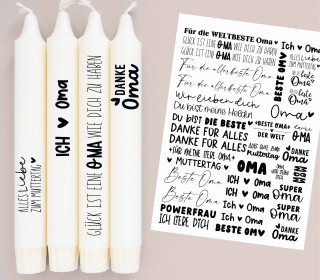 ALLES Liebe
ZUM MUTTERTAG
ICH ♥ Oma
GLÜCK IST EINE O-MA WIE DICH ZU HABEN
DANKE
Oma
Für die WELTBESTE Oma
GLÜCK IST EINE O-MA WIE DICH ZU HABEN
GLÜCK IST EINE O-MA WIE DICH ZU HABEN
Für die allerbeste Oma
Für die allerbeste Oma
Wir lieben dich
Du bist meine Heldin
BESTE OMA
Ich ♥ Oma
ALLES Liebe
ZUM MUTTERTAG
Oma
Oma
Oma
DU BIST DIE BESTE
DANKE FÜR ALLES
DANKE FÜR ALLES
BESTE OMA
DER WELT
Muttertag
DANKE
Oma
MUTTERTAG
OMA
Beste Oma
Beste Oma
Ich ♥ Oma
Ich ♥ Oma
SUPER
Oma
SUPER
Oma
POWERFRAU
ICH LIEBE DICH
Ich ♥ Oma
BESTE OMA
DANKE
Oma